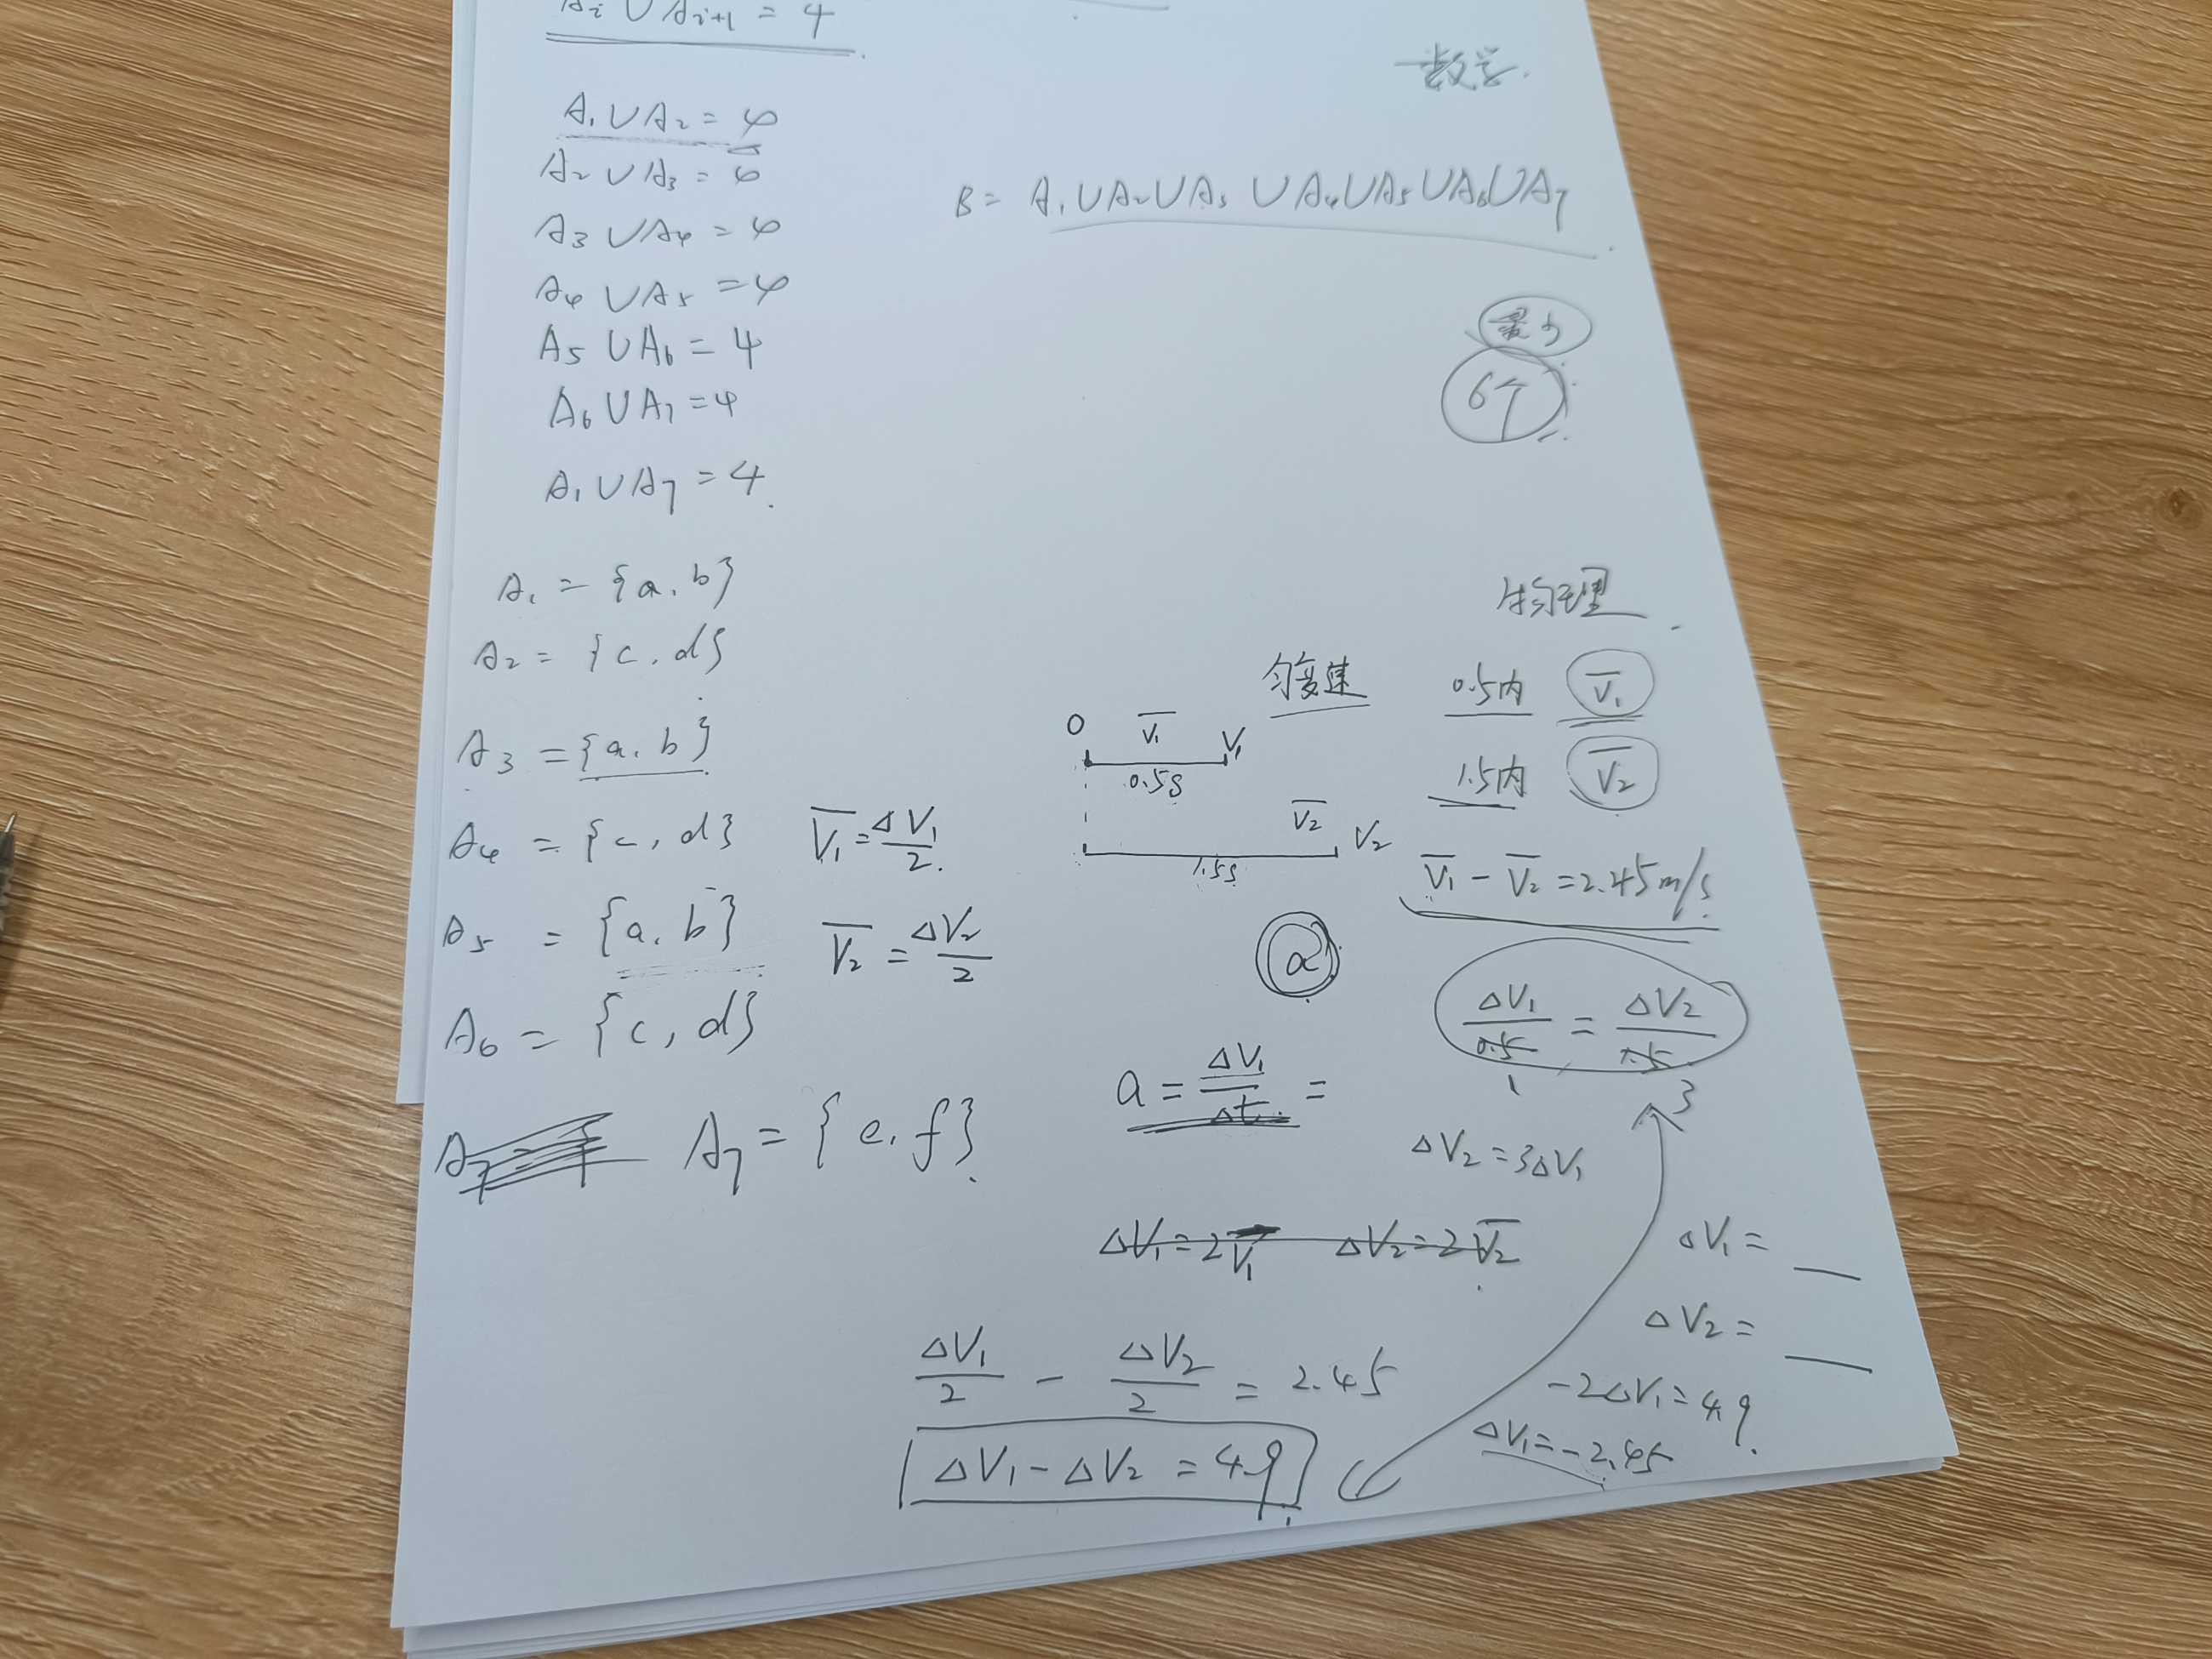 Ai ∪ Ai+1 = 4
数学.
A₁∪A₂ = 4
A₂∪A₃ = 4
A₃∪A₄ = 4
A₄∪A₅ = 4
A₅∪A₆ = 4
A₆∪A₇ = 4
A₁∪A₇ = 4.
B = A₁∪A₂∪A₃∪A₄∪A₅∪A₆∪A₇
最少
6个
A₁ = {a, b}
A₂ = {c, d}
A₃ = {a, b}
A₄ = {c, d}
A₅ = {a, b}
A₆ = {c, d}
A₇ = {e, f}.
物理
匀变速
0.5内 V̄₁
1.5内 V̄₂
0 V̄₁ V₁
0.5s
V̄₂ V₂
1.5s
V̄₁ - V̄₂ = 2.45m/s
V̄₁ = ΔV₁/2.
V̄₂ = ΔV₂/2
a
ΔV₁/0.5 = ΔV₂/1.5
1 3
a = ΔV₁/Δt =
ΔV₂ = 3ΔV₁
ΔV₁ = 2V̄₁ ΔV₂ = 2V̄₂
ΔV₁ =
ΔV₂ =
ΔV₁/2 - ΔV₂/2 = 2.45
-2ΔV₁ = 4.9.
ΔV₁ = -2.45
ΔV₁ - ΔV₂ = 4.9